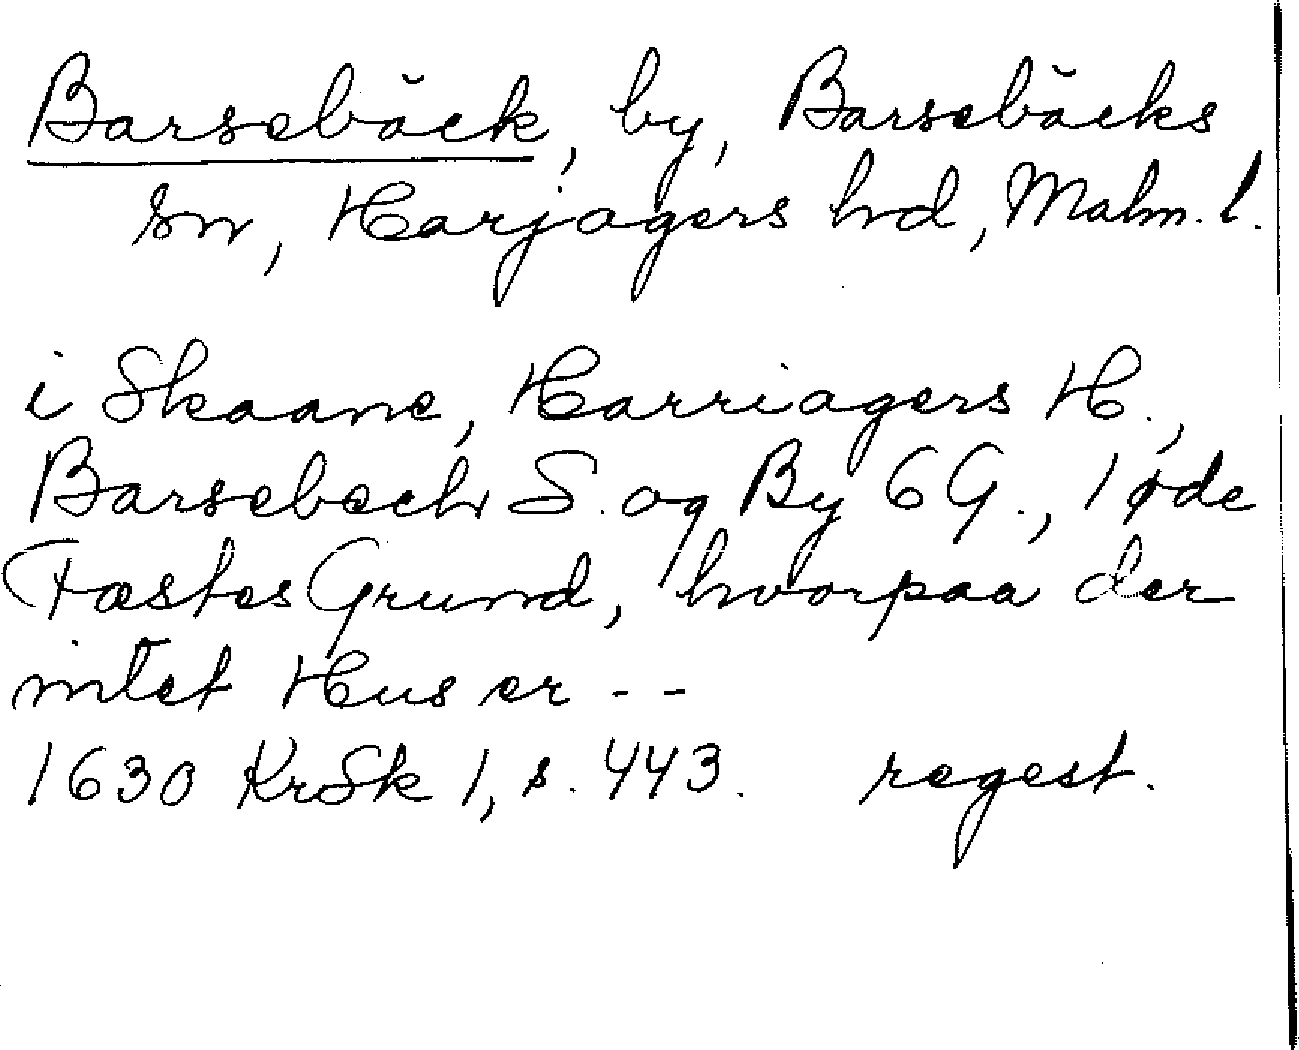 Barsebäck, by, Barsebäcks
sn, Harjagers hd, Malm. l.
i Skaane, Harriagers H.,
Barsebech S. og By 6 G., 1 øde
Fæstes Grund, hvorpaa der
intet Hus er - -
1630 KrSk 1, s. 443. regest.